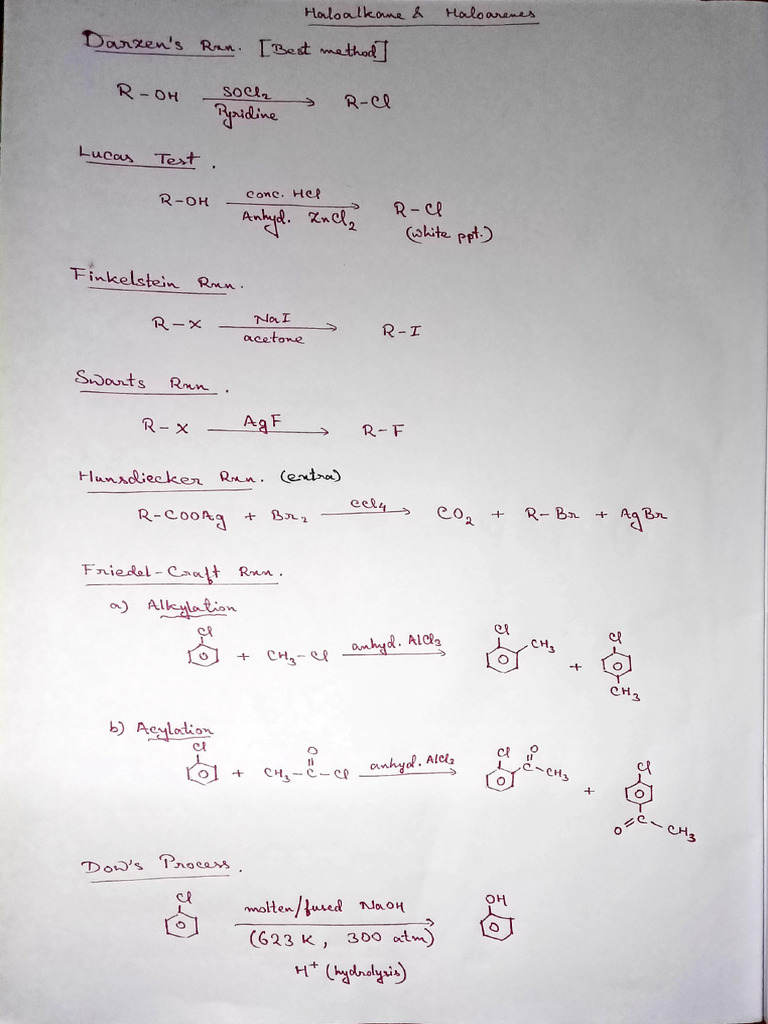 Haloalkane & Haloarenes
Darzen's Rxn. [Best method]
R-OH SOCl2 Pyridine → R-Cl
Lucas Test.
R-OH conc. HCl Anhyd. ZnCl2 → R-Cl
(white ppt.)
Finkelstein Rxn.
R-X NaI acetone → R-I
Swarts Rxn.
R-X AgF → R-F
Hunsdiecker Rxn. (extra)
R-COOAg + Br2 CCl4 → CO2 + R-Br + AgBr
Friedel-Craft Rxn.
a) Alkylation
Cl + CH3-Cl anhyd. AlCl3 → Cl CH3 + Cl CH3
b) Acylation
Cl + CH3-C-Cl O anhyd. AlCl3 → Cl O C-CH3 + Cl O C-CH3
Dow's Process.
Cl molten/fused NaOH → OH
(623 K, 300 atm)
H+ (hydrolysis)